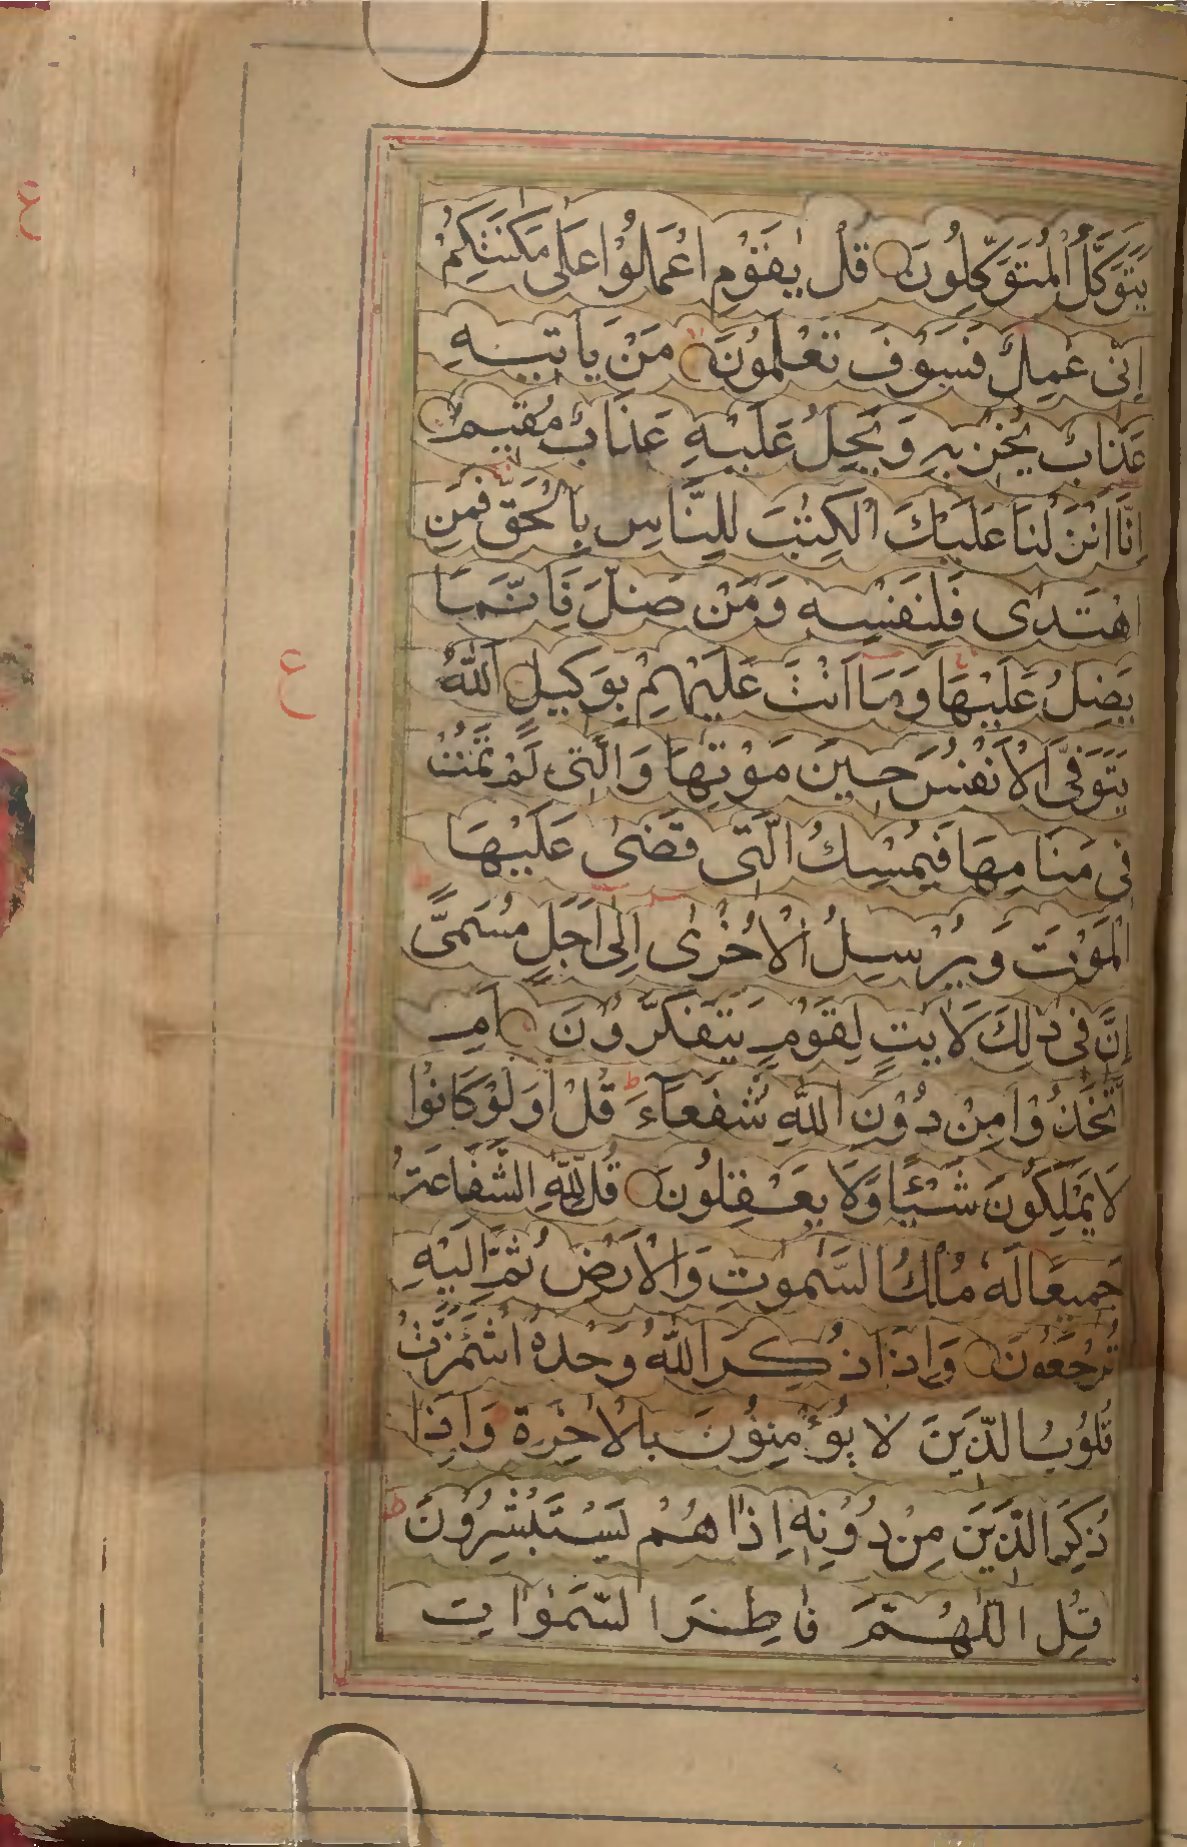 يَتَوَكَّلُ الْمُتَوَكِّلُونَ قُلْ يٰقَوْمِ اعْمَلُوْا عَلٰى مَكَانَتِكُمْ
اِنِّى عٰمِلٌ فَسَوْفَ تَعْلَمُوْنَ مَنْ يَاْتِيْهِ
عَذَابٌ يُخْزِيْهِ وَيَحِلُّ عَلَيْهِ عَذَابٌ مُقِيْمٌ
اِنَّا اَنْزَلْنَا عَلَيْكَ الْكِتٰبَ لِلنَّاسِ بِالْحَقِّ فَمَنِ
اهْتَدٰى فَلِنَفْسِهٖ وَمَنْ ضَلَّ فَاِنَّمَا
يَضِلُّ عَلَيْهَا وَمَا اَنْتَ عَلَيْهِمْ بِوَكِيْلٍ اَللّٰهُ
يَتَوَفَّى الْاَنْفُسَ حِيْنَ مَوْتِهَا وَالَّتِىْ لَمْ تَمُتْ
فِىْ مَنَامِهَا فَيُمْسِكُ الَّتِىْ قَضٰى عَلَيْهَا
الْمَوْتَ وَيُرْسِلُ الْاُخْرٰى اِلٰى اَجَلٍ مُسَمًّى
اِنَّ فِىْ ذٰلِكَ لَاٰيٰتٍ لِقَوْمٍ يَتَفَكَّرُوْنَ اَمِ
اتَّخَذُوْا مِنْ دُوْنِ اللّٰهِ شُفَعَآءَ ط قُلْ اَوَلَوْ كَانُوْا
لَا يَمْلِكُوْنَ شَيْئًا وَّلَا يَعْقِلُوْنَ قُلْ لِلّٰهِ الشَّفَاعَةُ
جَمِيْعًا لَهٗ مُلْكُ السَّمٰوٰتِ وَالْاَرْضِ ثُمَّ اِلَيْهِ
تُرْجَعُوْنَ وَاِذَا ذُكِرَ اللّٰهُ وَحْدَهُ اشْمَئَزَّتْ
قُلُوْبُ الَّذِيْنَ لَا يُؤْمِنُوْنَ بِالْاٰخِرَةِ وَاِذَا
ذُكِرَ الَّذِيْنَ مِنْ دُوْنِهٖ اِذَا هُمْ يَسْتَبْشِرُوْنَ ط
قُلِ اللّٰهُمَّ فَاطِرَ السَّمٰوَاتِ
ع
ع